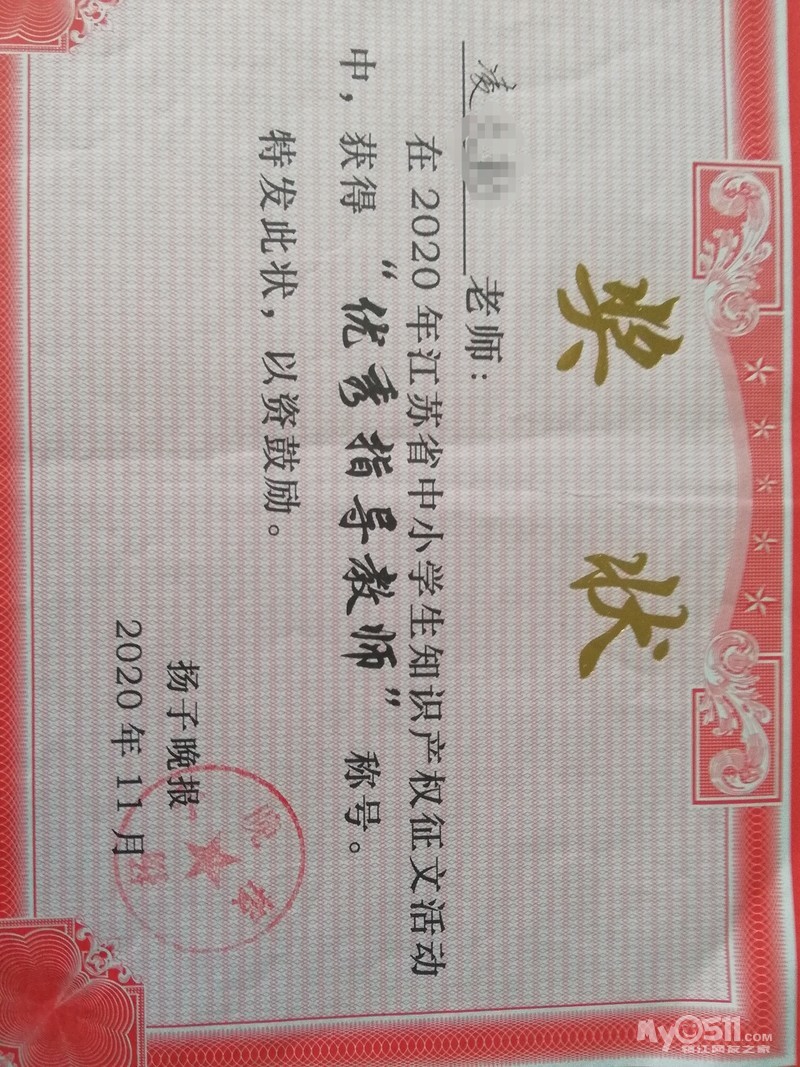 奖状
凌
老师：
在2020年江苏省中小学生知识产权征文活动
中，获得“优秀指导教师”称号。
特发此状，以资鼓励。
扬子晚报
2020年11月
晚报
My0511.COM
镇江网友之家